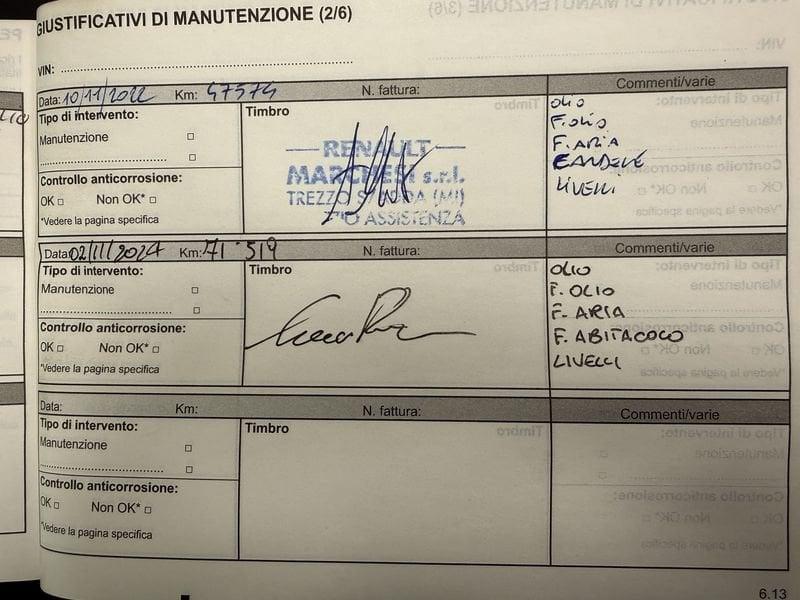 GIUSTIFICATIVI DI MANUTENZIONE (2/6)
VIN:
Data: 10/11/2022 Km: 47574 N. fattura: Commenti/varie
Tipo di intervento:
Manutenzione
Controllo anticorrosione:
OK Non OK*
*Vedere la pagina specifica
Timbro
RENAULT
MARCHESI s.r.l.
TREZZO S/ADDA (MI)
ASSISTENZA
OLIO
F. OLIO
F. ARIA
CANDELE
LIVELLI
Data: 02/11/2024 Km: 71·519 N. fattura: Commenti/varie
Tipo di intervento:
Manutenzione
Controllo anticorrosione:
OK Non OK*
*Vedere la pagina specifica
Timbro
OLIO
F. OLIO
F. ARIA
F. ABITACOLO
LIVELLI
Data: Km: N. fattura: Commenti/varie
Tipo di intervento:
Manutenzione
Controllo anticorrosione:
OK Non OK*
*Vedere la pagina specifica
Timbro
6.13